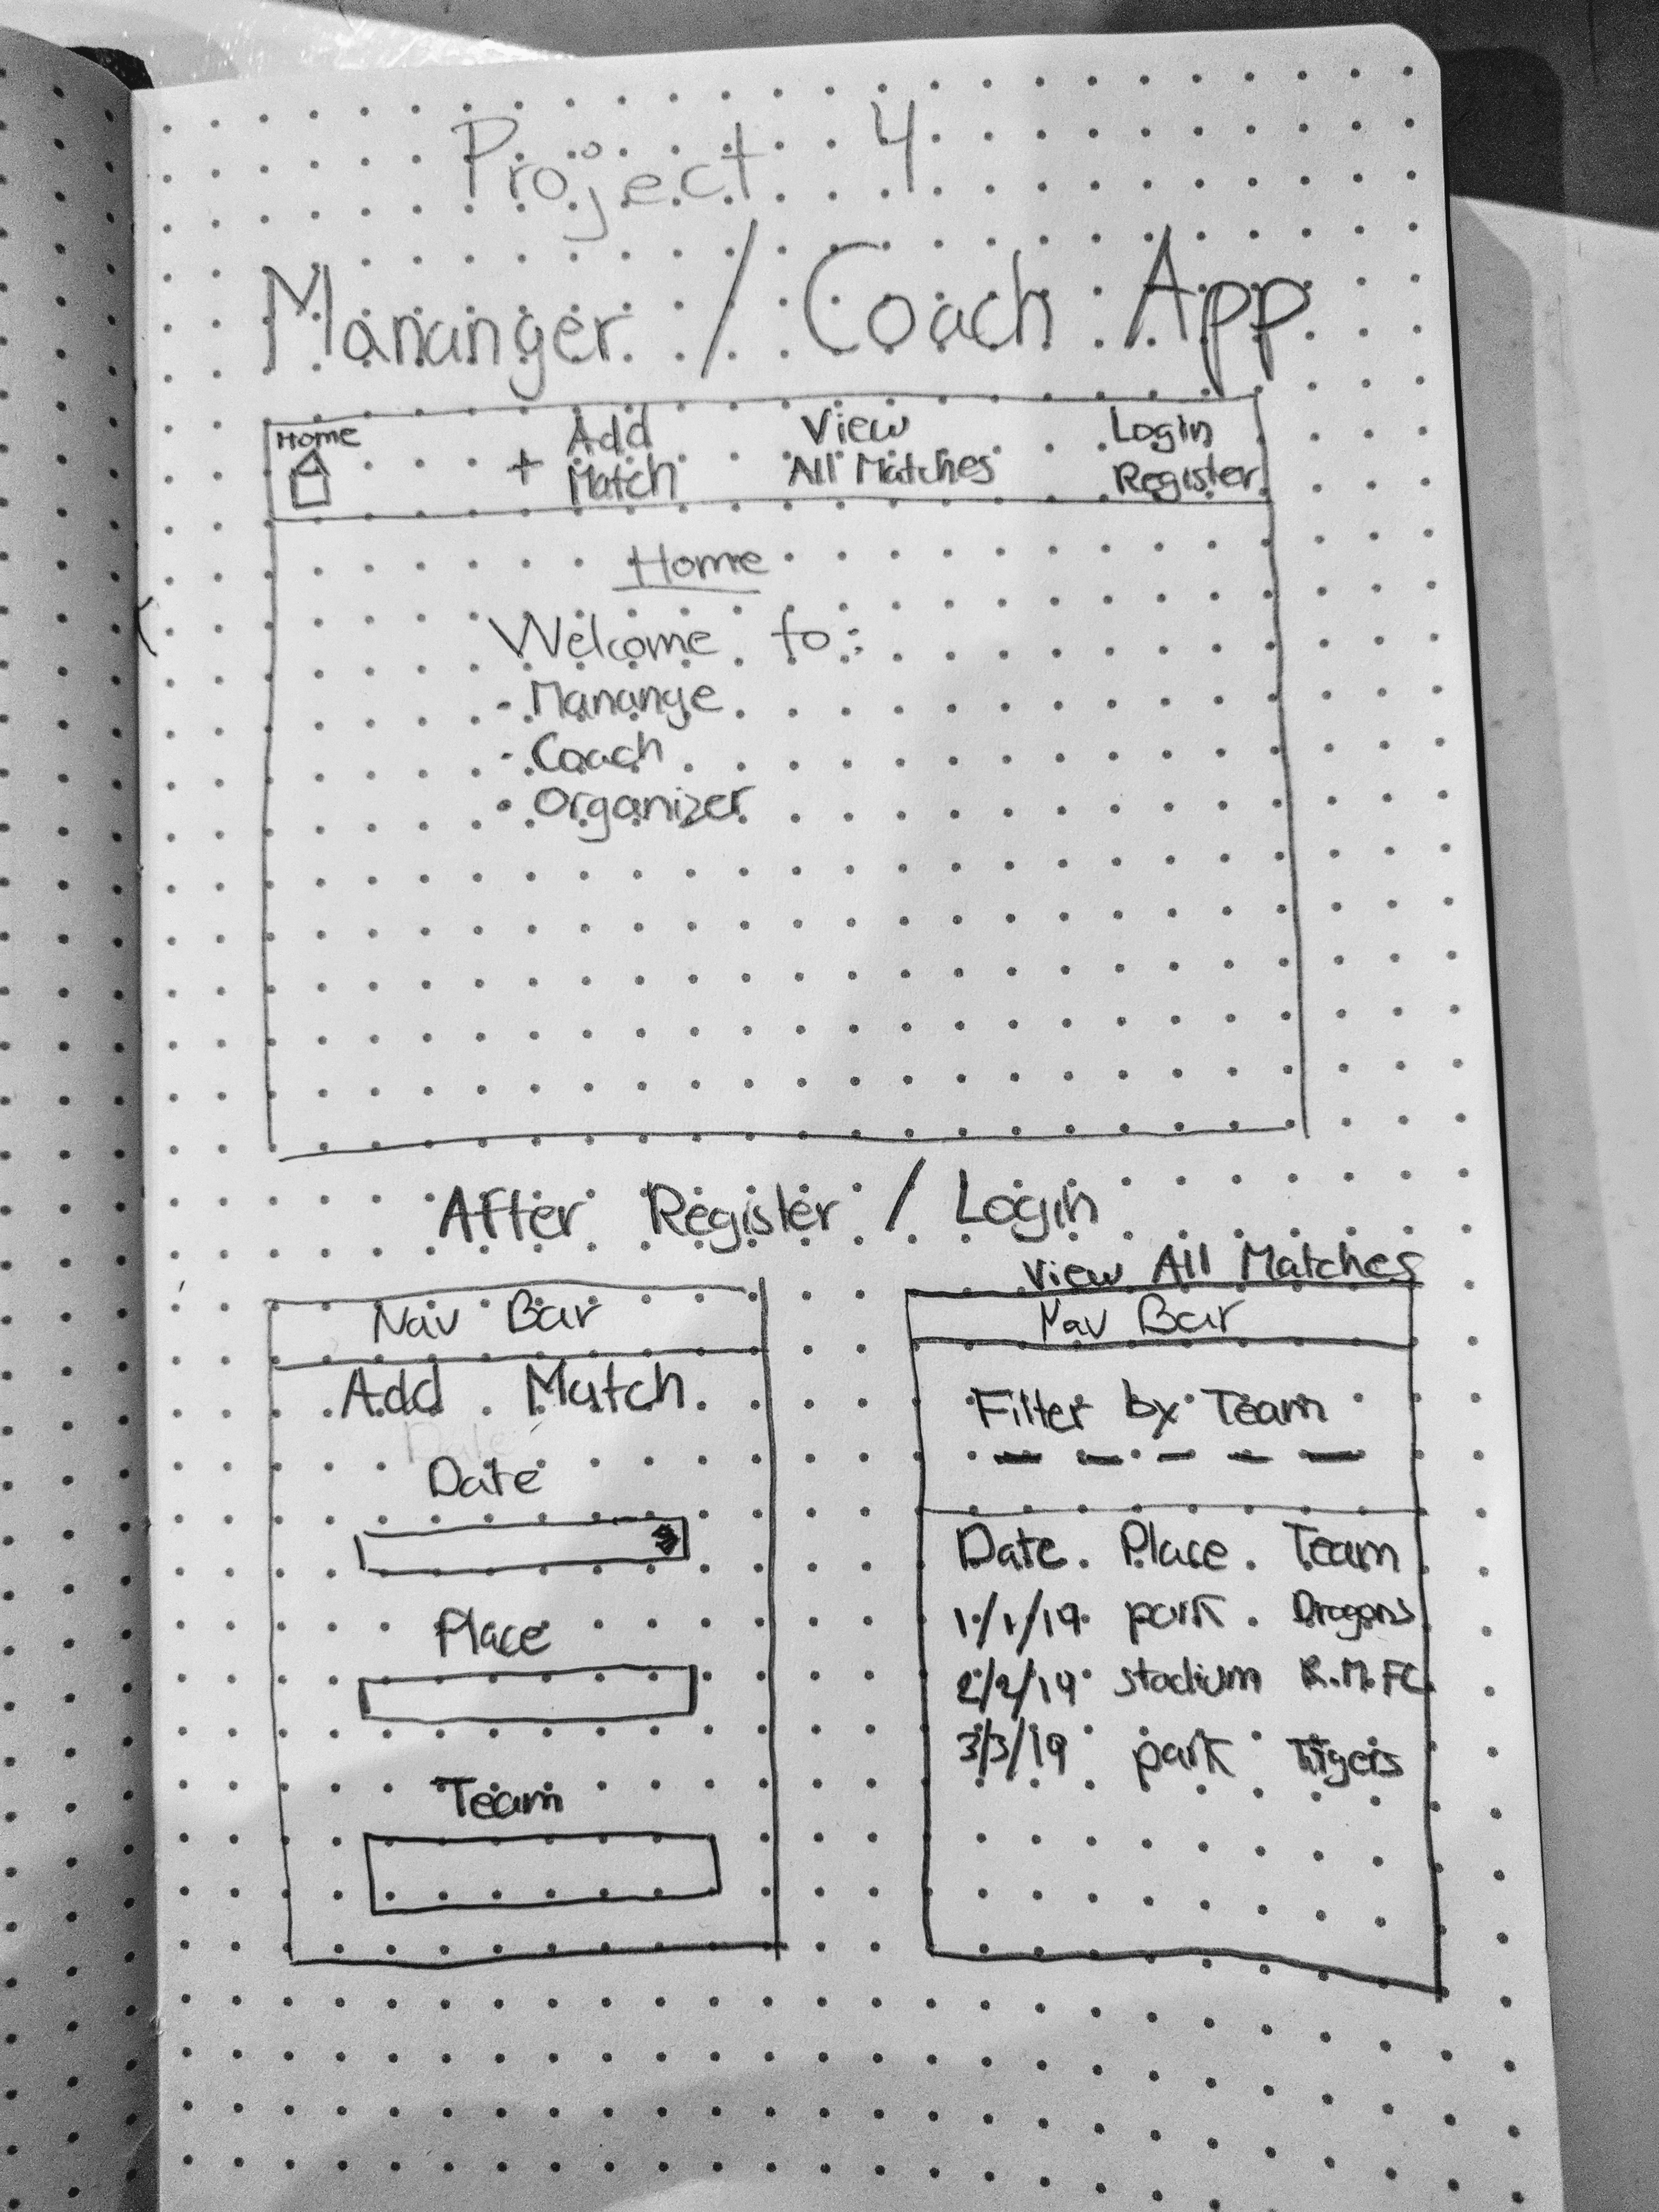 Project 4
Mananger / Coach App
Home
+ Add Match
View All Matches
Login
Register
Home
Welcome to:
- Manange
- Coach
• Organizer
After Register / Login
Nav Bar
Add Match
Date
Place
Team
View All Matches
Nav Bar
Filter by Team
Date Place Team
1/1/19 park Dragons
2/2/19 stadium R.M.FC
3/3/19 park Tigers